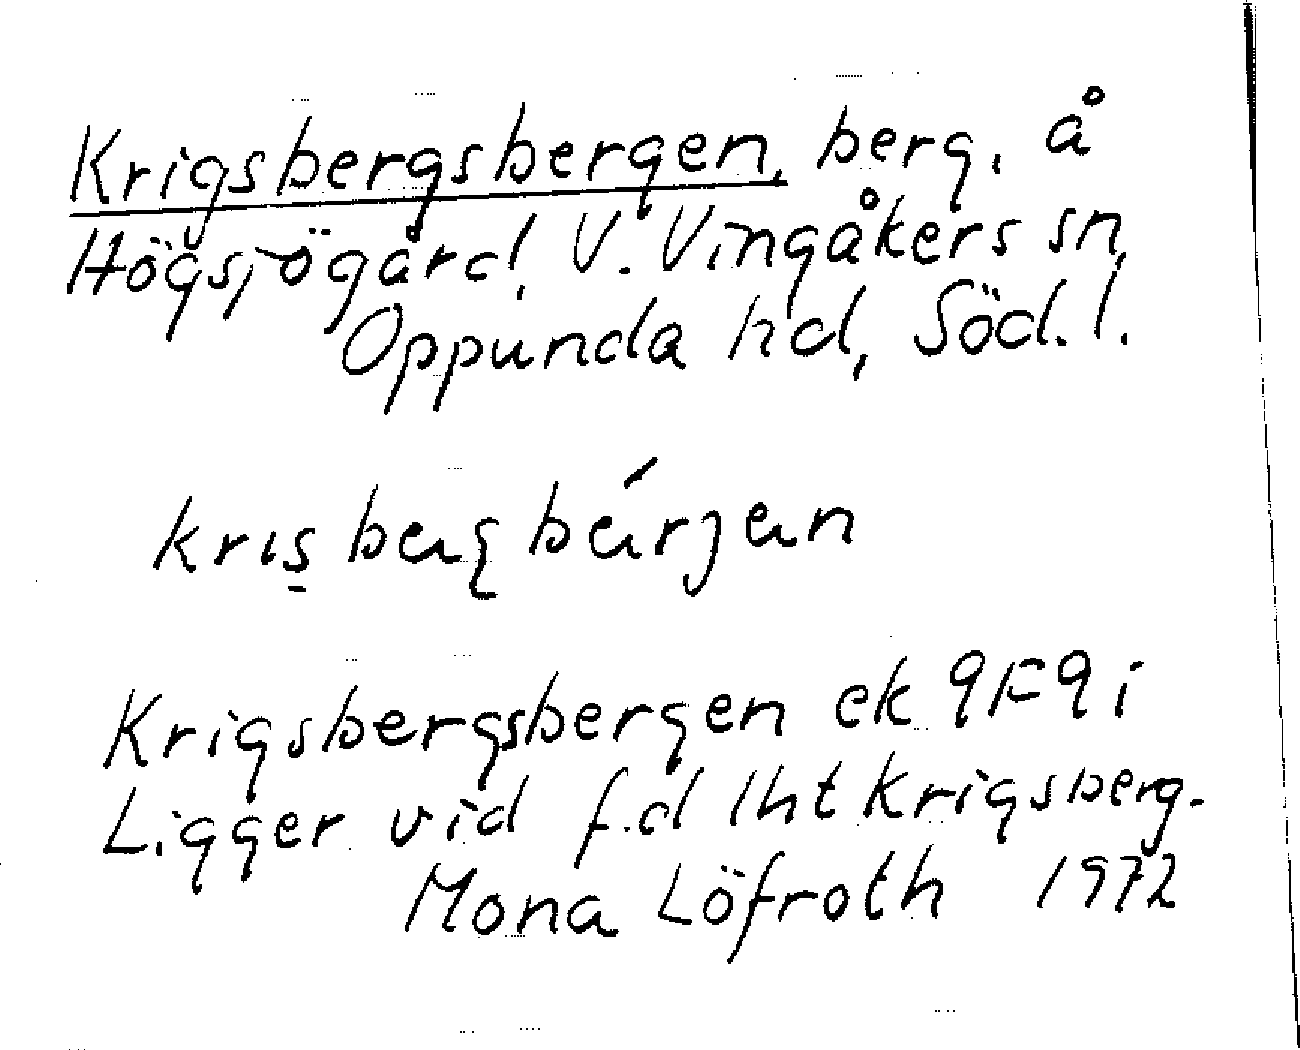 Krigsbergsbergen, berg, å
Högsjögård, V. Vingåkers sn,
Oppunda hd, Söd. l.
Krigsbergsbergen ek 9F9i
Ligger vid f.d lht Krigsberg.
Mona Löfroth 1972